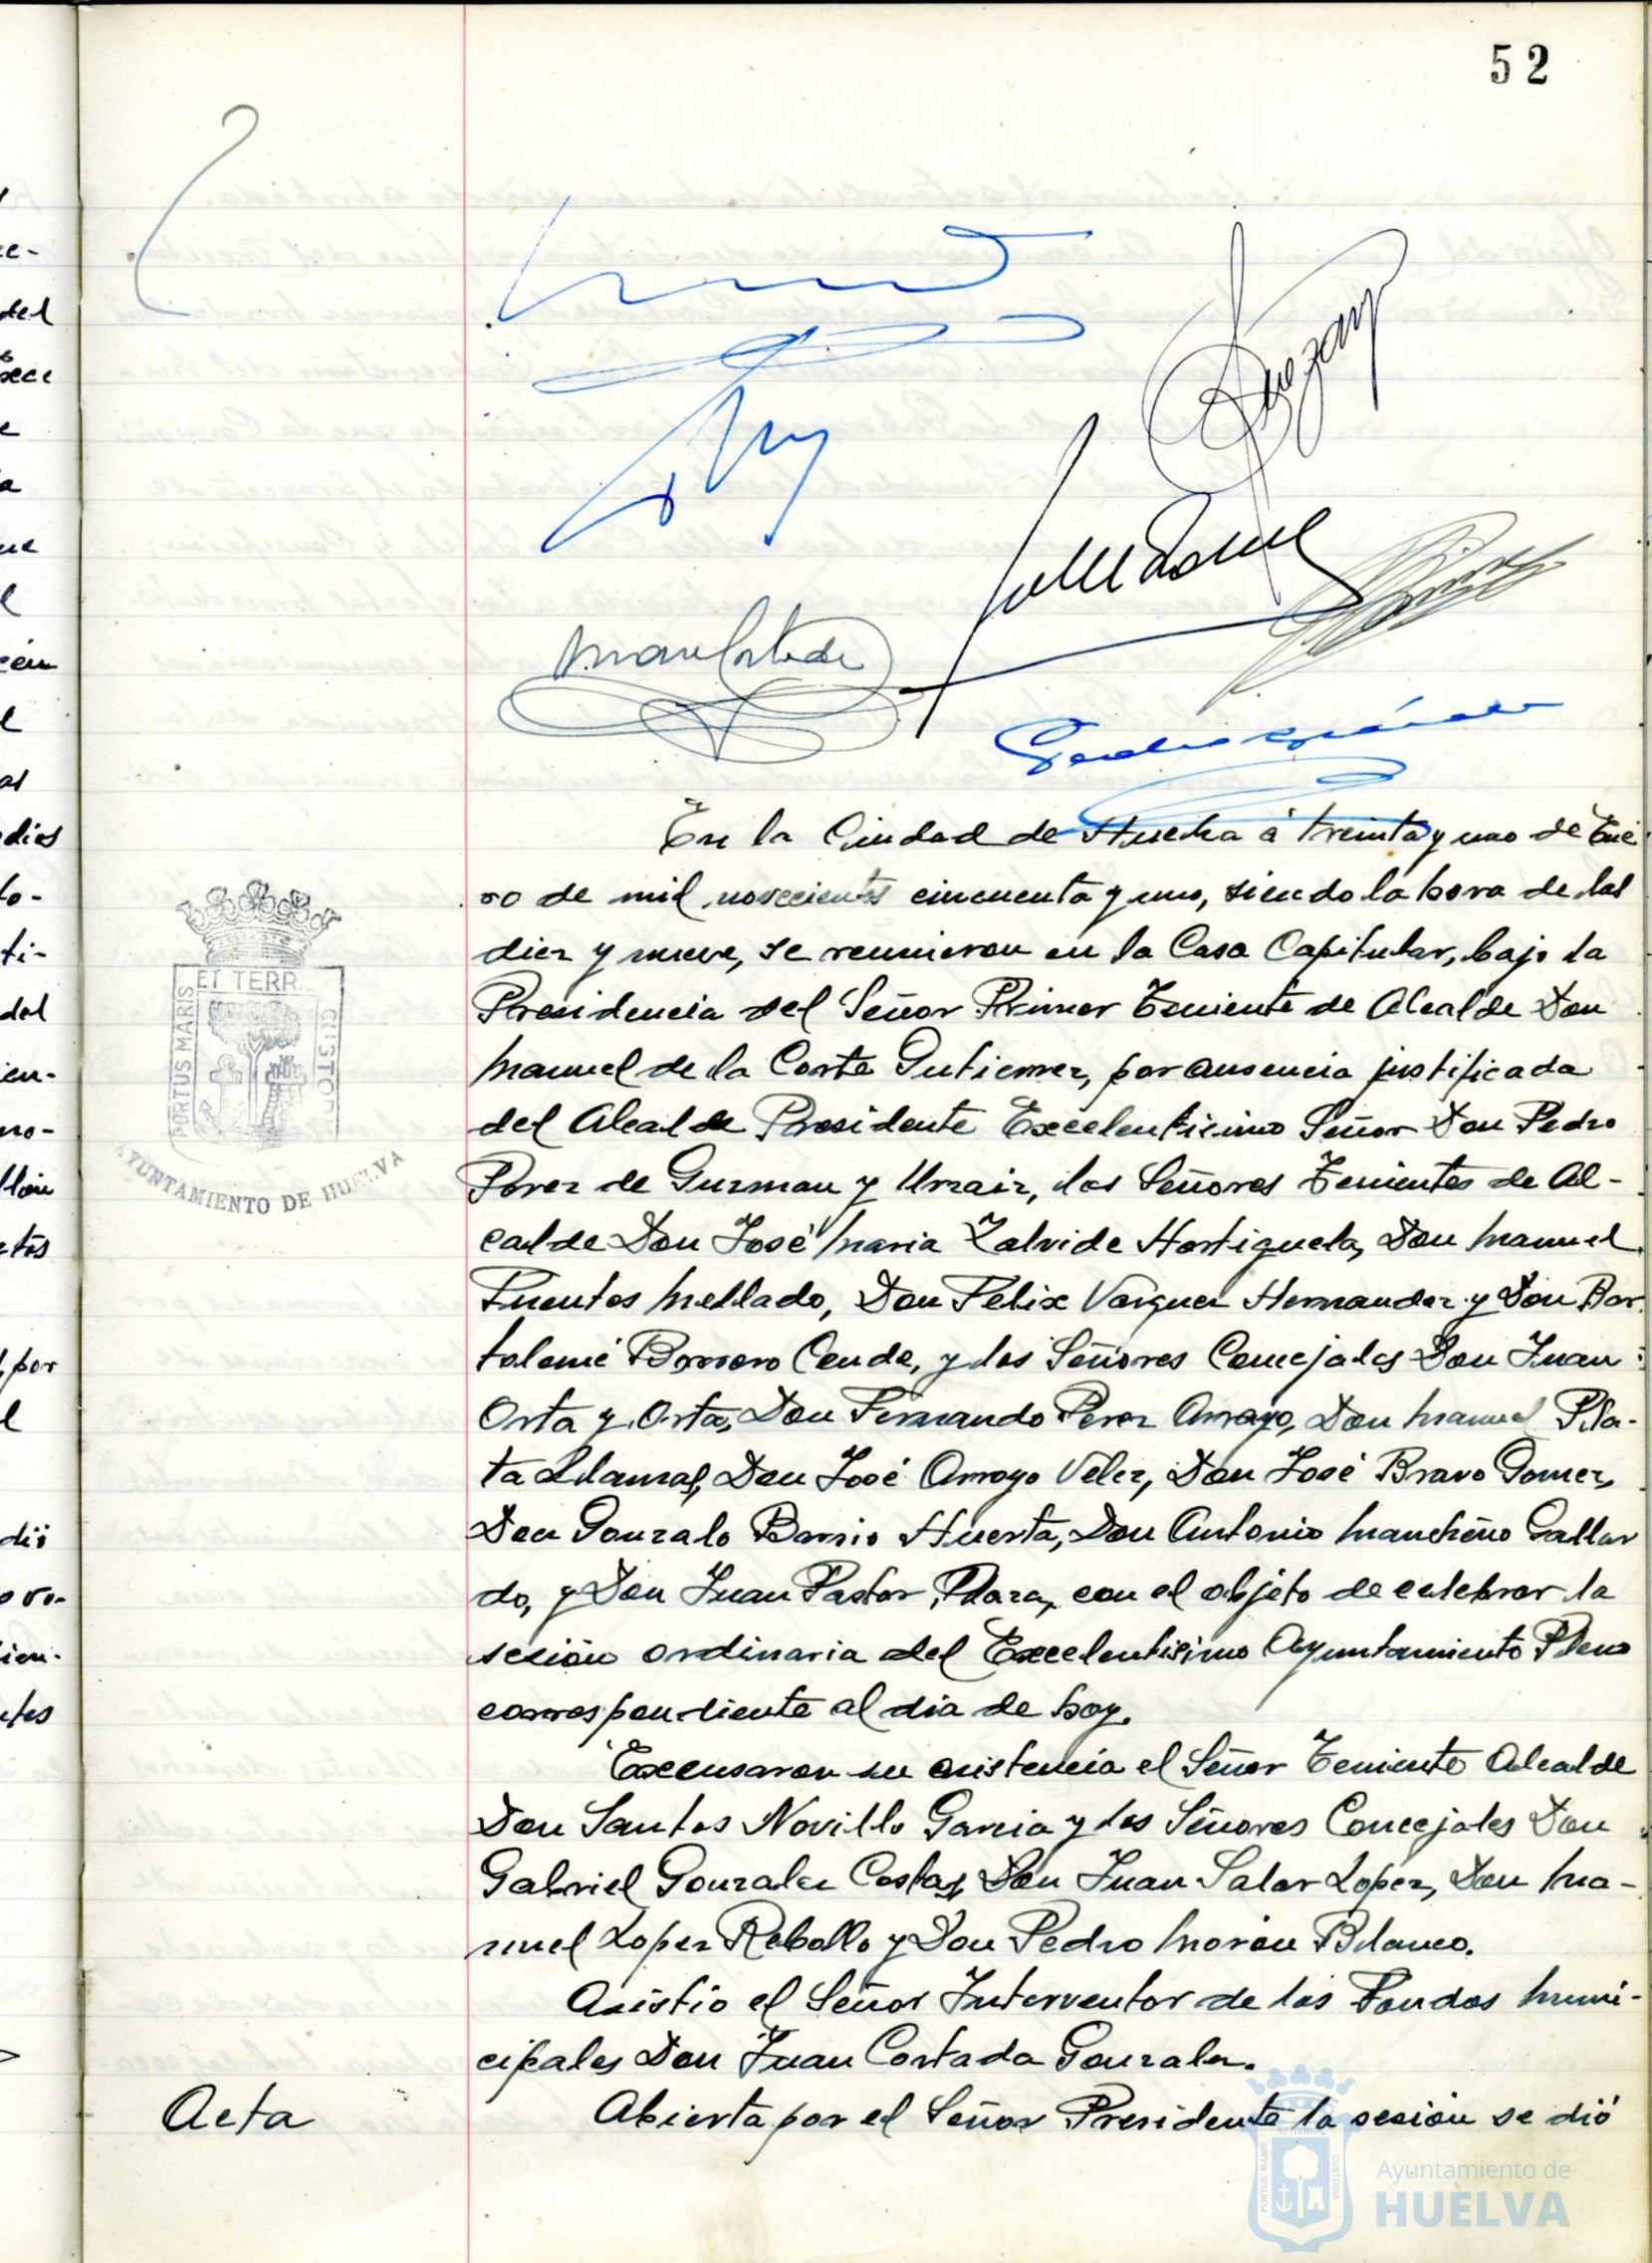 52
En la Ciudad de Huelva á treinta y uno de Ene
ro de mil novecientos cincuenta y uno, siendo la hora de las
diez y nueve, se reunieron en la Casa Capitular, bajo la
Presidencia del Señor Primer Teniente de Alcalde Don
Manuel de la Corte Gutierrez, por ausencia justificada
del Alcalde Presidente Excelentisimo Señor Don Pedro
Perez de Guzman y Urzaiz, los Señores Tenientes de Al-
calde Don José Maria Zalvide Hortiguela, Don Manuel
Puentes Mellado, Don Felix Vazquez Hernandez y Don Bar
tolomé Borrero Conde, y los Señores Concejales Don Juan
Orta y Orta, Don Fernando Perez Arroyo, Don Manuel Pla-
ta Llamas, Don José Arroyo Velez, Don José Bravo Gomez,
Don Gonzalo Barrio Huerta, Don Antonio Mancheño Gallar
do, y Don Juan Pastor Plaza, con el objeto de celebrar la
sesión ordinaria del Excelentisimo Ayuntamiento Pleno
correspondiente al dia de hoy.
Excusaron su asistencia el Señor Teniente Alcalde
Don Santos Novillo Garcia y los Señores Concejales Don
Gabriel Gonzalez Costas, Don Juan Salas Lopez, Don Ma-
nuel Lopez Rebollo y Don Pedro Morón Blanco.
Asistio el Señor Interventor de los Fondos Muni-
cipales Don Juan Cortada Gonzalez.
Acta
Abierta por el Señor Presidente la sesión se dió
PORTUS MARIS
ET TERR
AYUNTAMIENTO DE HUELVA
Ayuntamiento de
HUELVA